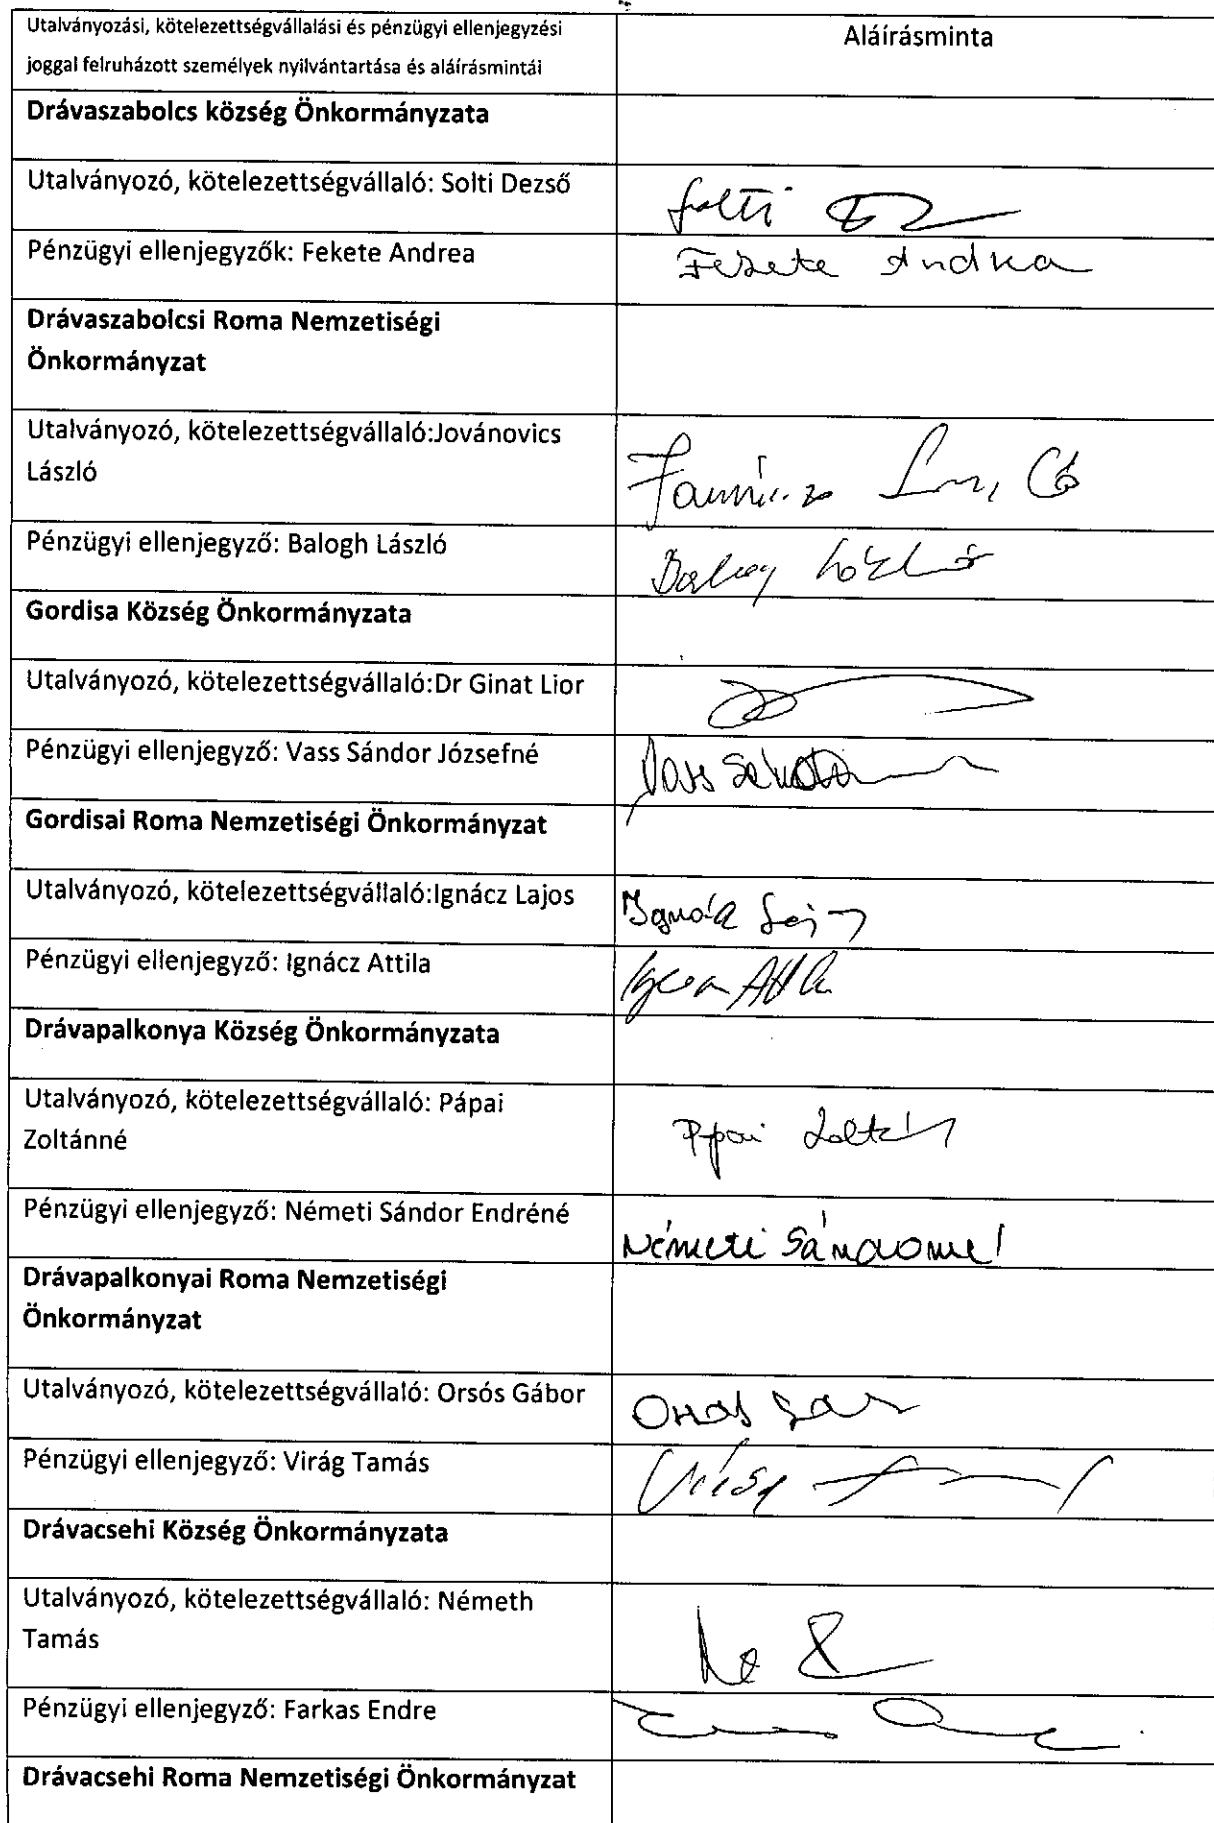 Utalványozási, kötelezettségvállalási és pénzügyi ellenjegyzési
joggal felruházott személyek nyilvántartása és aláírásmintái
Aláírásminta
Drávaszabolcs község Önkormányzata
Utalványozó, kötelezettségvállaló: Solti Dezső
Solti
Pénzügyi ellenjegyzők: Fekete Andrea
Fekete Andrea
Drávaszabolcsi Roma Nemzetiségi
Önkormányzat
Utalványozó, kötelezettségvállaló:Jovánovics
László
Pénzügyi ellenjegyző: Balogh László
Gordisa Község Önkormányzata
Utalványozó, kötelezettségvállaló:Dr Ginat Lior
Pénzügyi ellenjegyző: Vass Sándor Józsefné
Vass
Gordisai Roma Nemzetiségi Önkormányzat
Utalványozó, kötelezettségvállaló:Ignácz Lajos
Pénzügyi ellenjegyző: Ignácz Attila
Drávapalkonya Község Önkormányzata
Utalványozó, kötelezettségvállaló: Pápai
Zoltánné
Pénzügyi ellenjegyző: Németi Sándor Endréné
Németi Sándorné
Drávapalkonyai Roma Nemzetiségi
Önkormányzat
Utalványozó, kötelezettségvállaló: Orsós Gábor
Pénzügyi ellenjegyző: Virág Tamás
Drávacsehi Község Önkormányzata
Utalványozó, kötelezettségvállaló: Németh
Tamás
Pénzügyi ellenjegyző: Farkas Endre
Drávacsehi Roma Nemzetiségi Önkormányzat